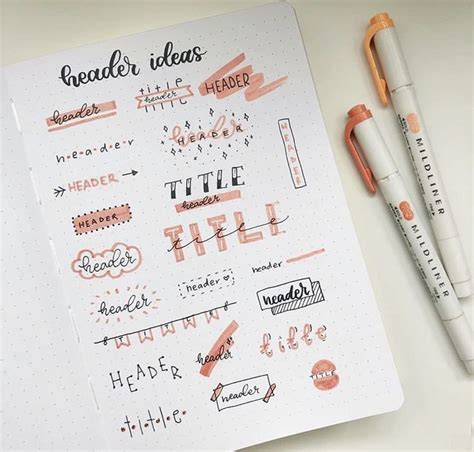 header ideas
header
title
header
HEADER
h·e·a·d·e·r
header
HEADER
HEADER
HEADER
TITLE
header
HEADER
TITLE
title
header
header
header
header
header
header
title
HEADER
TITLE
header
t·i·t·l·e
MILDLINER
MILDLINER